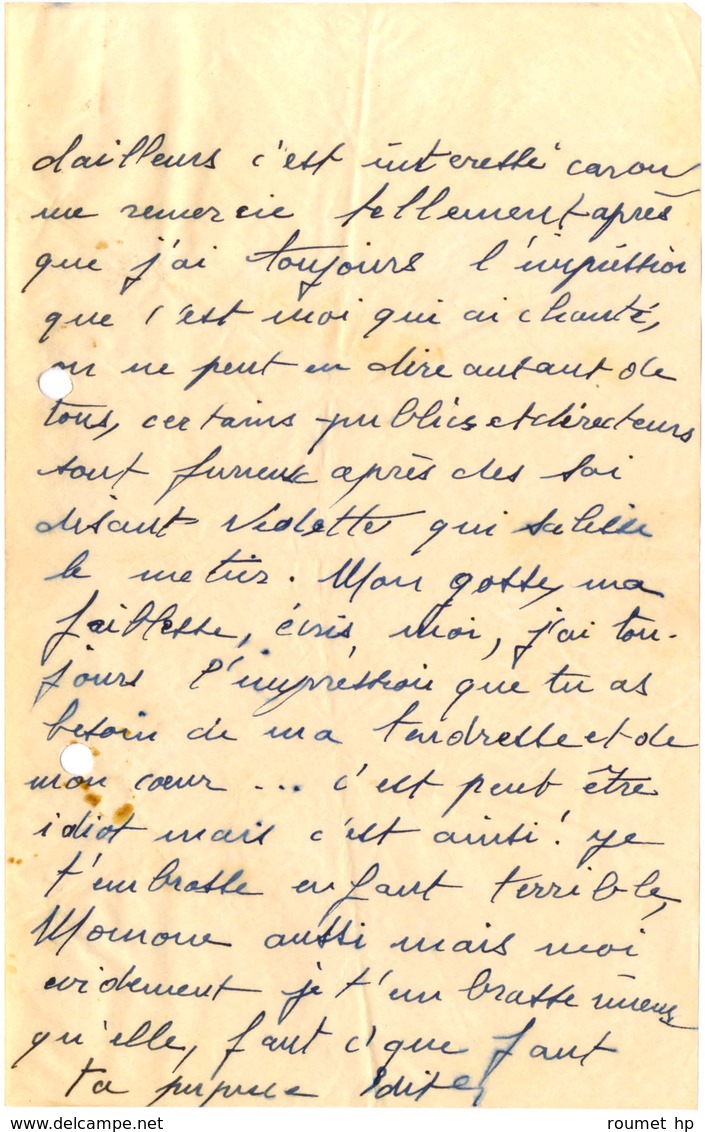 dailleurs c'est interessé car on
me remercie tellement après
que j'ai toujours l'impréssion
que c'est moi qui ai chanté,
on ne peut en dire autant de
tous, certains publics et directeurs
sont furieux après des soi
disant vedettes qui
le metier. Mon gosse, ma
faiblesse, écris moi, j'ai tou-
jours l'impréssion que tu as
besoin de ma tendresse et de
mon cœur ... c'est peut être
idiot mais c'est ainsi! je
t'embrasse enfant terrible,
Momone aussi mais moi
evidement je t'embrasse mieux
qu'elle, faut c'que faut
ta Edith
roumet hp